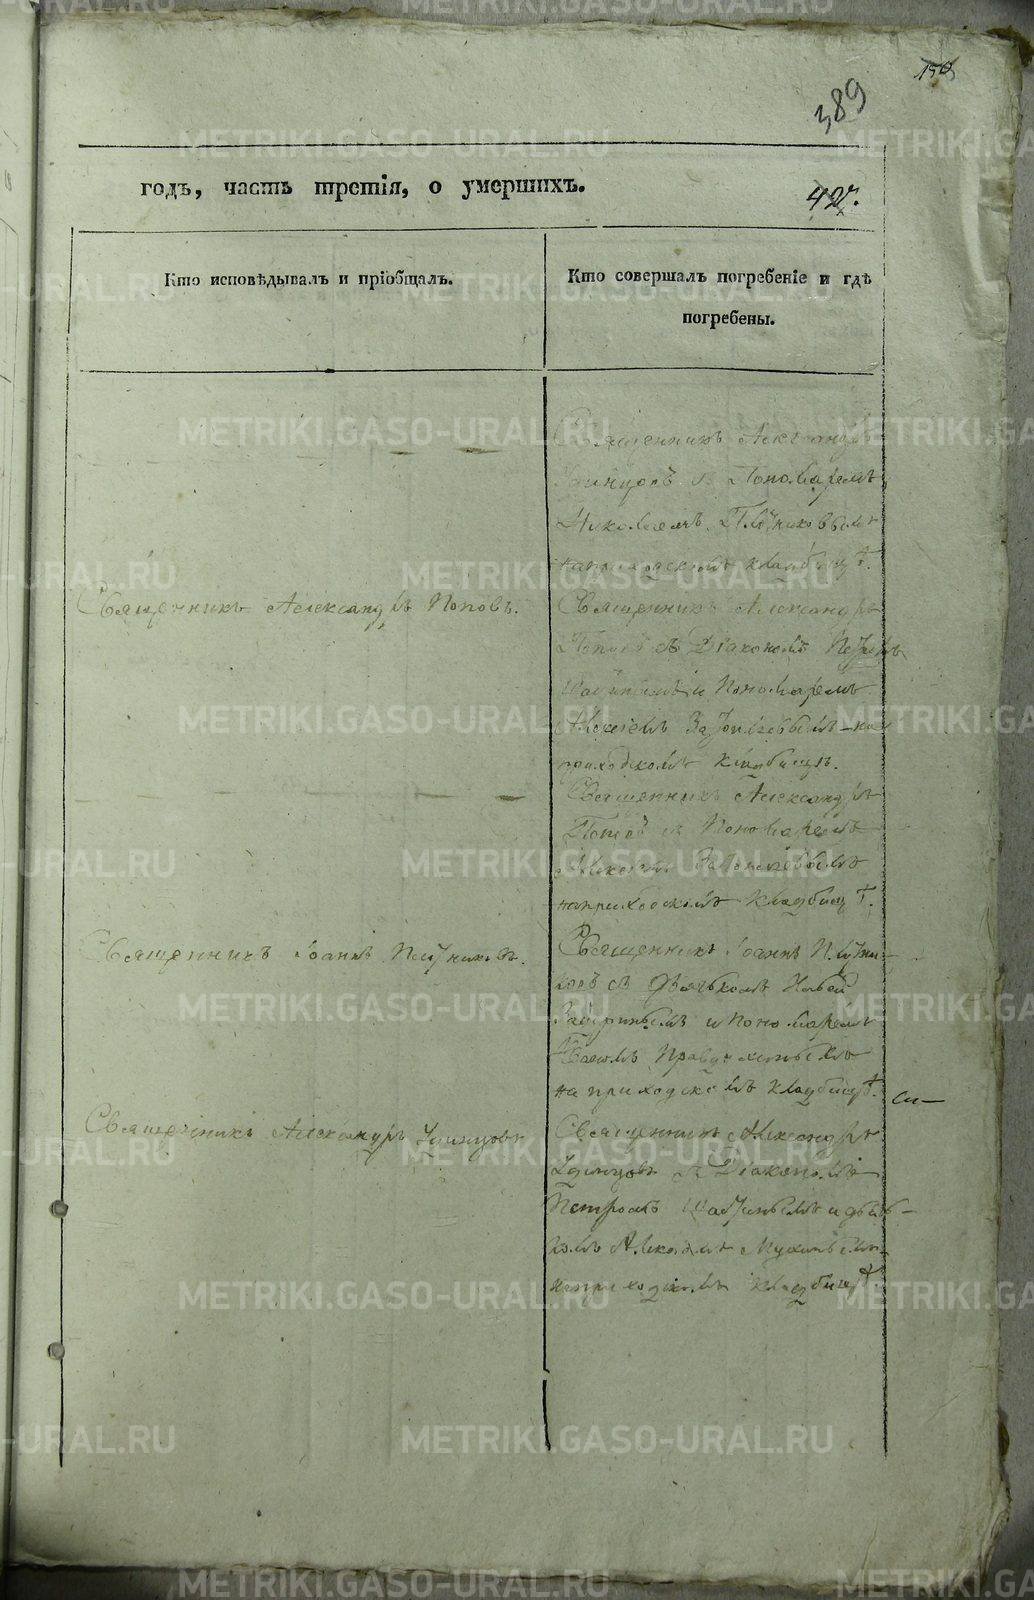 150
389
годъ, часть третія, о умершихъ.
427.
Кто исповѣдывалъ и пріобщалъ.
Кто совершалъ погребеніе и гдѣ
погребены.
Священникъ Александръ
Удинцовъ съ Пономаремъ
Николаемъ Плотниковымъ
на приходскомъ кладбищѣ.
Священникъ Александръ Поповъ.
Священникъ Александръ
Поповъ съ Діакономъ Петромъ
и Пономаремъ
Алексіемъ на
приходскомъ кладбищѣ.
Священникъ Александръ
Поповъ съ Пономаремъ
Алексіемъ
на приходскомъ кладбищѣ.
Священникъ Іоаннъ Плотниковъ.
Священникъ Іоаннъ Плотни-
ковъ съ Дьячкомъ
и Пономаремъ
на приходскомъ кладбищѣ.
Священникъ Александръ Удинцовъ
Священникъ Александръ
Удинцовъ съ Діакономъ
Петромъ и дьяч-
комъ Мухинымъ
на приходскомъ кладбищѣ.
METRIKI.GASO-URAL.RU